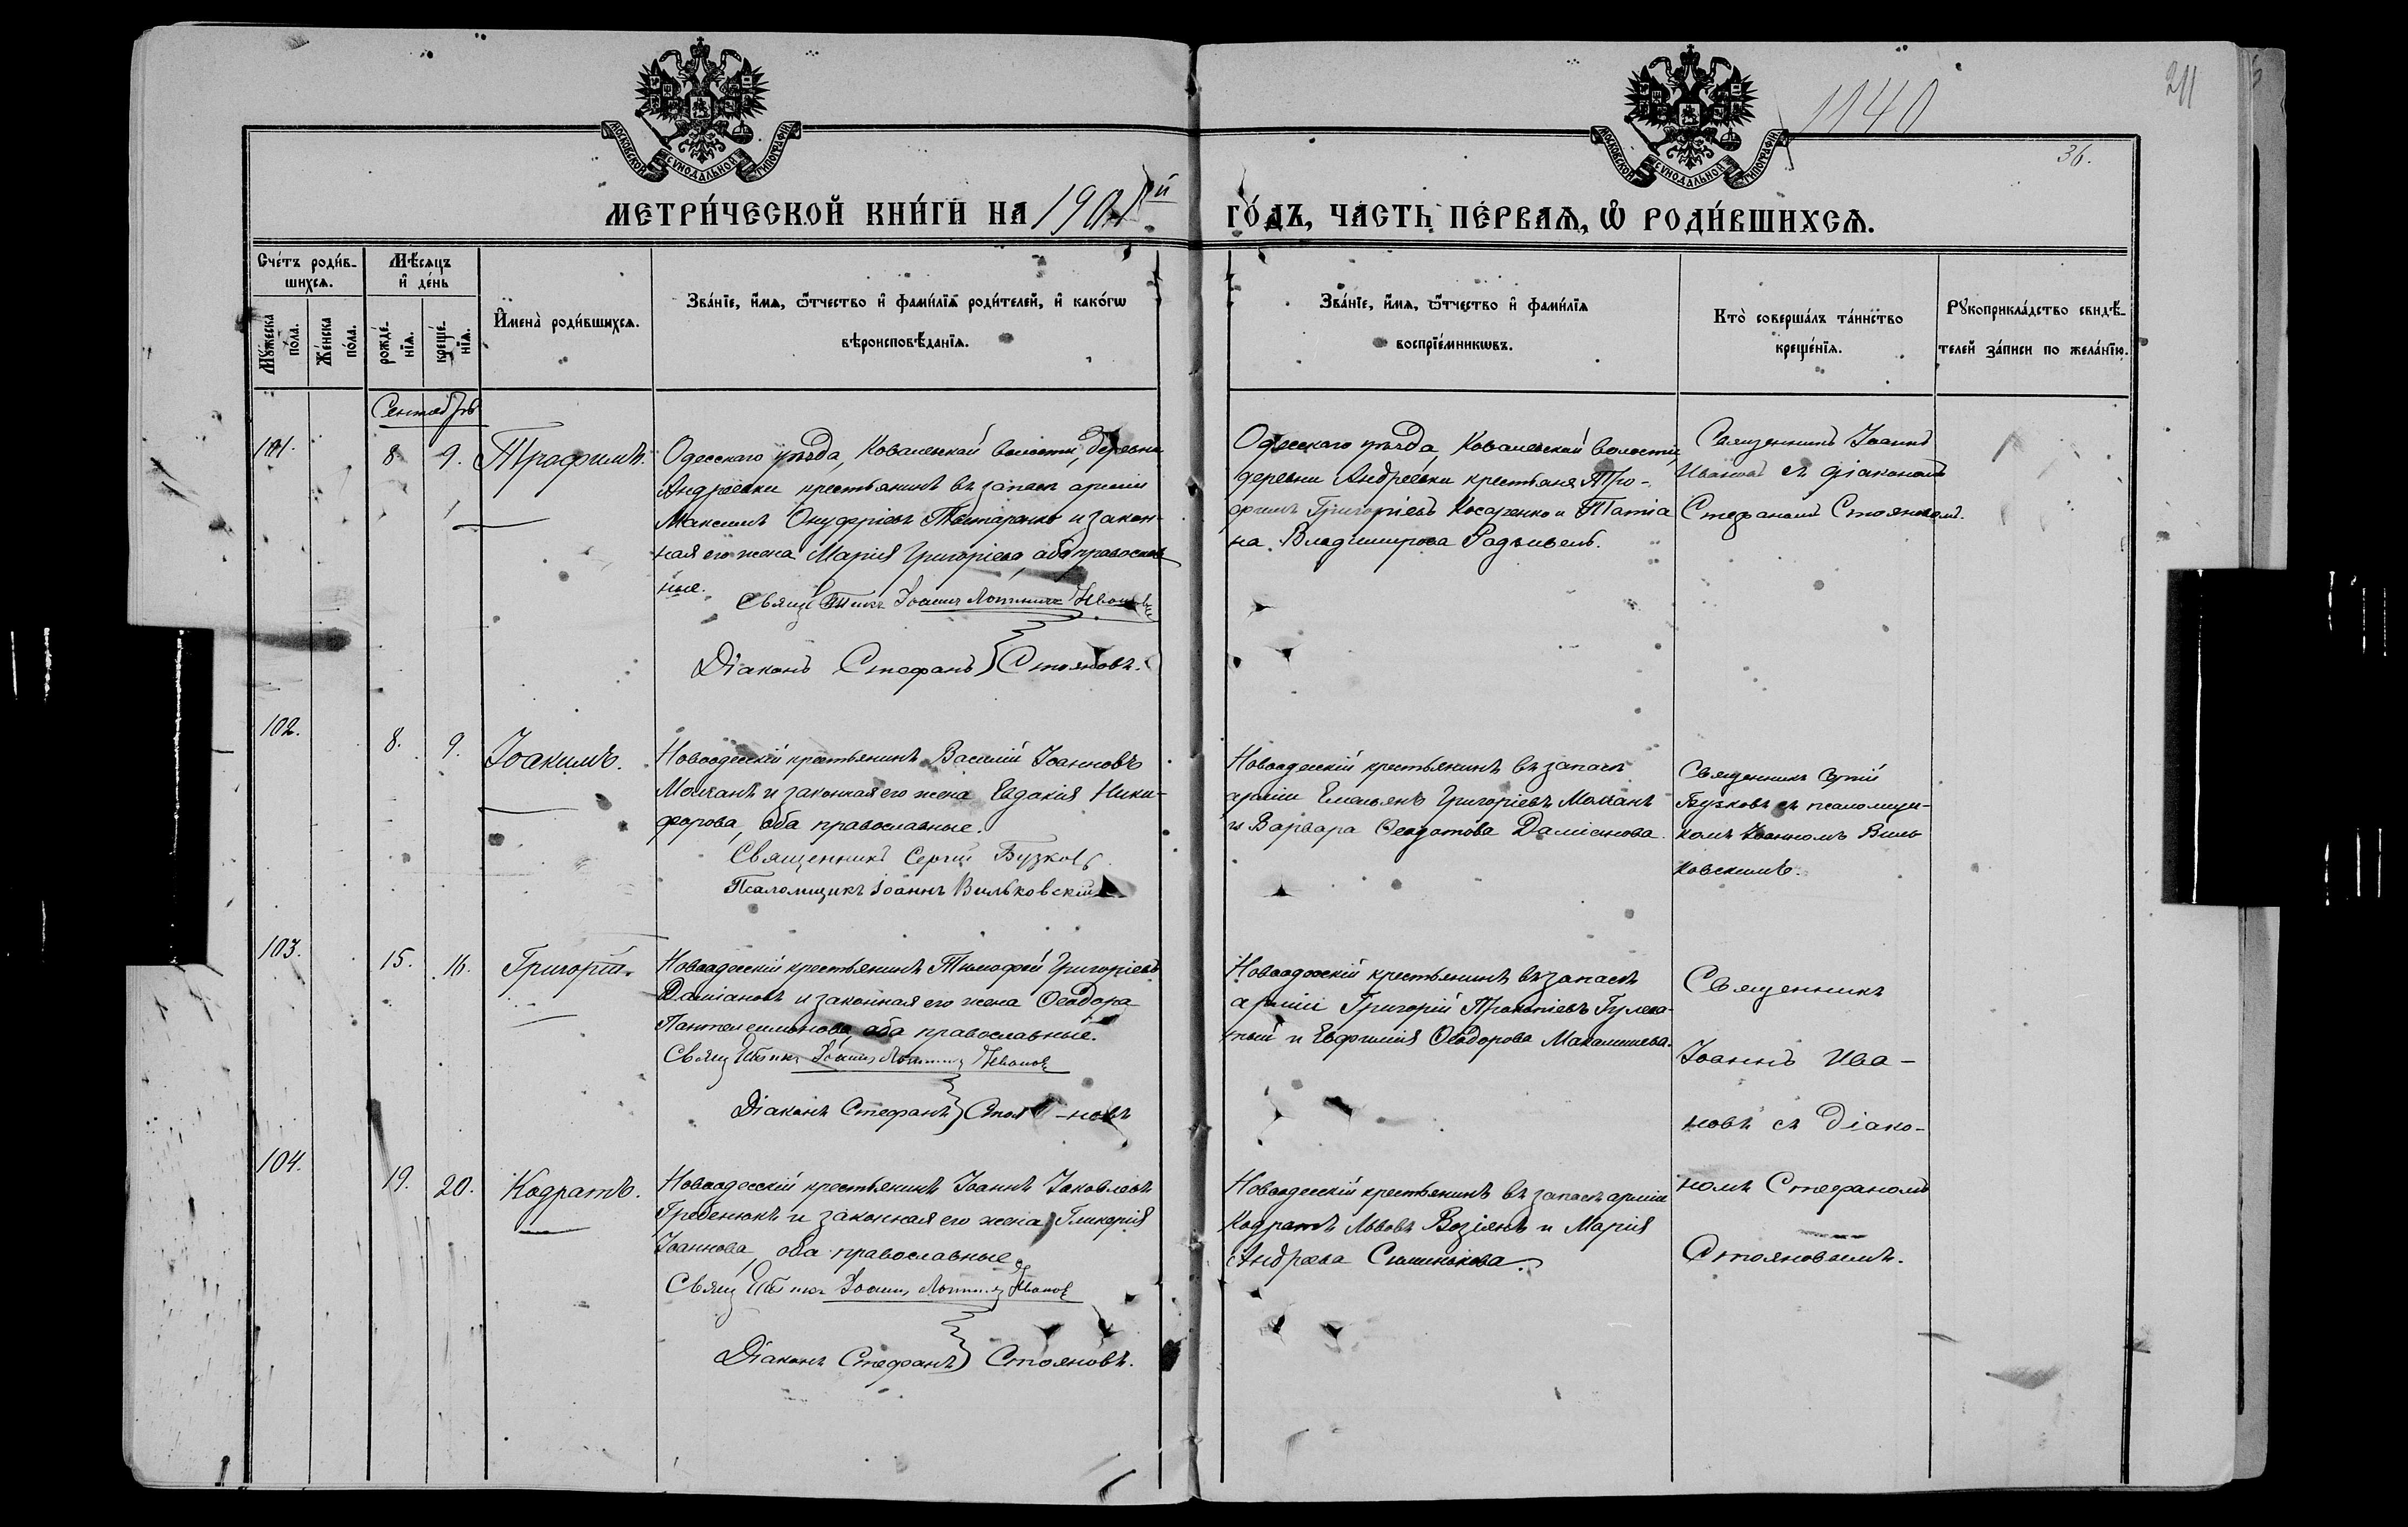 1140
211
36.
МОСКОВСКОЙ СУНОДАЛЬНОЙ ТИПОГРАФІИ
МОСКОВСКОЙ СУНОДАЛЬНОЙ ТИПОГРАФІИ
МЕТРИ́ЧЕСКОЙ КНИ́ГИ НА 1901й
ГО́ДЪ, ЧА́СТЬ ПЕ́РВАѦ, Ѡ҆ РОДИ́ВШИХСѦ.
Сче́тъ роди́в-
шихсѧ.
Мꙋ́жеска
по́ла.
Же́нска
по́ла.
Мѣ́сѧцъ
и҆ де́нь
рожде́-
нїѧ.
креще́-
нїѧ.
И҆мена̀ роди́вшихсѧ.
Зва́нїе, и҆́мѧ, ѻ҆́тчество и҆ фами́лїѧ роди́телей, и҆ како́гѡ
вѣроисповѣ́данїѧ.
Зва́нїе, и҆́мѧ, ѻ҆́тчество и҆ фами́лїѧ
воспрїе́мникѡвъ.
Кто̀ соверша́лъ та́инство
креще́нїѧ.
Рꙋкоприкла́дство свидѣ́-
телей за́писи по жела́нїю.
Сентябрь
101.
8
9.
Трофимъ.
Одесскаго уѣзда, Ковалевской волости, деревни
Андреевки крестьянинъ въ запасѣ арміи
Максимъ Онуфріевъ и закон-
ная его жена Марія Григоріева, оба православ
ные.
Іоаннъ Ивановъ
Діаконъ Стефанъ Стояновъ.
Одесскаго уѣзда, Ковалевской волости,
деревни Андреевки крестьяне Тро-
фимъ Григоріевъ Косаренко и Татіа
на Владимирова
Священникъ Іоаннъ
Ивановъ съ діакономъ
Стефаномъ Стояновымъ.
102.
8.
9.
Іоакимъ.
Новоодесскій крестьянинъ Василій Іоанновъ
Молчанъ и законная его жена Евдокія Ники-
форова, оба православные.
Священникъ Сергій Бузковъ
Псаломщикъ Іоаннъ Вильковскій
Новоодесскій крестьянинъ въ запасѣ
арміи Емельянъ Григоріевъ Молчанъ
и Варвара Ѳеодотова Даміанова.
Священникъ Сергій
Бузковъ съ псаломщи-
комъ Іоанномъ Виль
ковскимъ.
103.
15.
16.
Григорій.
Новоодесскій крестьянинъ Тимофей Григоріевъ
Даміановъ и законная его жена Ѳеодора
Пантелеимонова, оба православные.
Іоаннъ Ивановъ
Діаконъ Стефанъ Стоя-новъ
Новоодесскій крестьянинъ въ запасѣ
арміи Григорій Прокопіевъ
и Евфимія Ѳеодорова
Священникъ
Іоаннъ Ива-
новъ съ діако-
номъ Стефаномъ
Стояновымъ.
104.
19.
20.
Кодратъ.
Новоодесскій крестьянинъ Іоаннъ Іаковлевъ
Гребенюкъ и законная его жена Гликерія
Іоаннова, оба православные
Іоаннъ Ивановъ
Діаконъ Стефанъ Стояновъ.
Новоодесскій крестьянинъ въ запасѣ арміи
Кодратъ Львовъ Возіянъ и Марія
Андреева